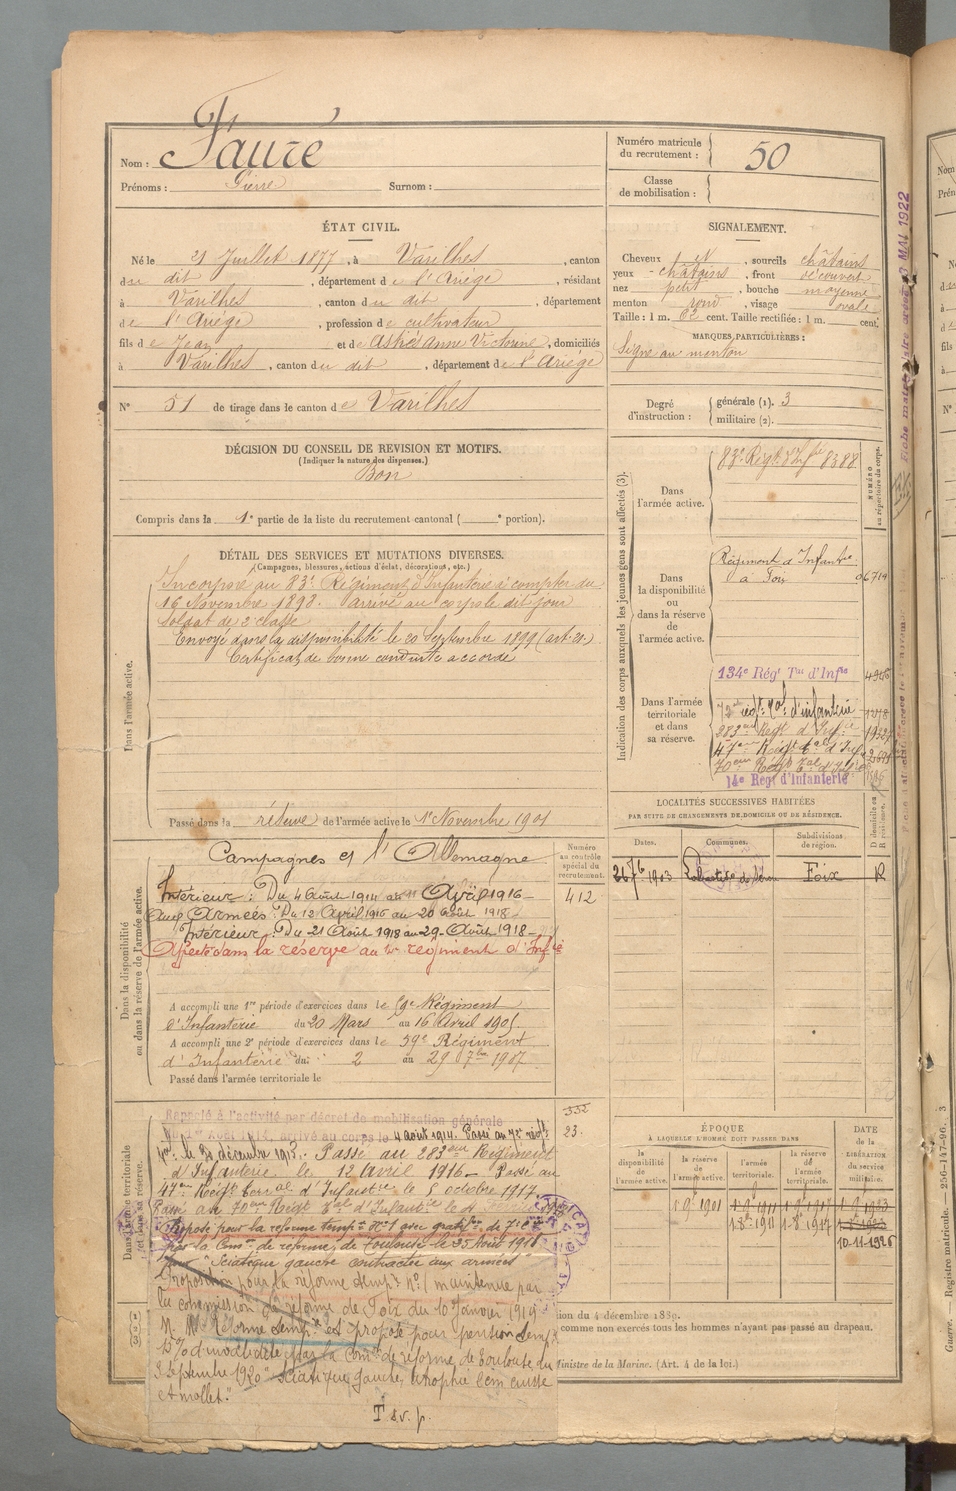 Nom : Fauré
Prénoms : Pierre Surnom :
Numéro matricule du recrutement : 50
Classe de mobilisation :
ÉTAT CIVIL.
Né le 21 Juillet 1877, à Varilhes, canton
du dit, département de l'Ariège, résidant
à Varilhes, canton du dit, département
de l'Ariège, profession de cultivateur
fils de Jean et de Astié Anne Victorine, domiciliés
à Varilhes, canton du dit, département de l'Ariège
N° 51 de tirage dans le canton de Varilhes
DÉCISION DU CONSEIL DE REVISION ET MOTIFS.
(Indiquer la nature des dispenses.)
Bon
Compris dans la 1e partie de la liste du recrutement cantonal ( e portion).
SIGNALEMENT.
Cheveux et, sourcils châtains
yeux châtains, front découvert
nez petit, bouche moyenne
menton rond, visage ovale
Taille : 1 m. 62 cent. Taille rectifiée : 1 m. cent.
MARQUES PARTICULIÈRES :
Signe au menton
Degré d'instruction : générale (1). 3
militaire (2).
DÉTAIL DES SERVICES ET MUTATIONS DIVERSES.
(Campagnes, blessures, actions d'éclat, décorations, etc.)
Dans l'armée active.
Incorporé au 83e Régiment d'Infanterie à compter du
16 Novembre 1898. Arrivé au corps le dit jour
Soldat de 2e classe
Envoyé dans la disponibilité le 20 Septembre 1899 (art. 20.)
Certificat de bonne conduite accordé
Passé dans la réserve de l'armée active le 1er Novembre 1901
Indication des corps auxquels les jeunes gens sont affectés (3).
NUMÉRO au répertoire du corps.
Dans l'armée active.
83e Régt d'Infie 8388
Dans la disponibilité ou dans la réserve de l'armée active.
Régiment d'Infantie
à Foix 06714
Dans l'armée territoriale et dans sa réserve.
134e Régt Tal d'Infie
72e régt tal d'infanterie
283eme Regt d'Infie
47eme Regt Tal d'Inf
70eme Régt Tal d'Infie
14e Régt d'Infanterie
LOCALITÉS SUCCESSIVES HABITÉES
PAR SUITE DE CHANGEMENTS DE DOMICILE OU DE RÉSIDENCE.
Dates. Communes. Subdivisions de région. D domicile ou R résidence.
1903 Foix R
Dans la disponibilité ou dans la réserve de l'armée active.
Campagnes et l'Allemagne
Numéro au contrôle spécial du recrutement.
412
Intérieur : Du 4 Août 1914 au 11 Avril 1916
Aux Armées : Du 12 Avril 1916 au 20 Août 1918
Intérieur : Du 21 Août 1918 au 29 Août 1918
Affecté dans la réserve au régiment d'Infie
A accompli une 1re période d'exercices dans le 59e Régiment
d'Infanterie du 20 Mars au 16 Avril 1905
A accompli une 2e période d'exercices dans le 59e Régiment
d'Infanterie du 2 au 29 7bre 1907
Passé dans l'armée territoriale le
Dans l'armée territoriale et dans sa réserve.
Rappelé à l'activité par décret de mobilisation générale
du 1er Août 1914, arrivé au corps le 4 août 1914. Passé au 72e régt
le décembre 1915. Passé au 283eme Régiment
d'Infanterie le 12 Avril 1916. Passé au
47eme Regt Terral d'Infantie le 5 octobre 1917.
Passé au 70eme Régt Tal d'Infantie le
Proposé pour la réforme tempre N° 1 avec gratifon de 7e
par la Comon de réforme de Toulouse le 25 Août 1918
pour "Sciatique gauche contractée aux armées
Proposition pour la réforme tempre n° 1 maintenue par
la commission de réforme de Foix du 10 Janvier 1919
Réformé tempre et proposé pour pension tempre
15% d'invalidité par la Comon de réforme de Toulouse du
3 Septembre 1920 "Sciatique gauche, atrophie cuisse
et mollet."
T.s.v.p.
332
23.
ÉPOQUE
À LAQUELLE L'HOMME DOIT PASSER DANS
la disponibilité de l'armée active. la réserve de l'armée active. l'armée territoriale. la réserve de l'armée territoriale.
DATE de la LIBÉRATION du service militaire.
1-9bre 1901
1-8bre 1911 1-8bre 1917
10-11-1926
ion du 4 décembre 1889.
comme non exercés tous les hommes n'ayant pas passé au drapeau.
Ministre de la Marine. (Art. 4 de la loi.)
Fiche matriculaire créée MAI 1922
Guerre. — Registre matricule. — 256-147-96. 3